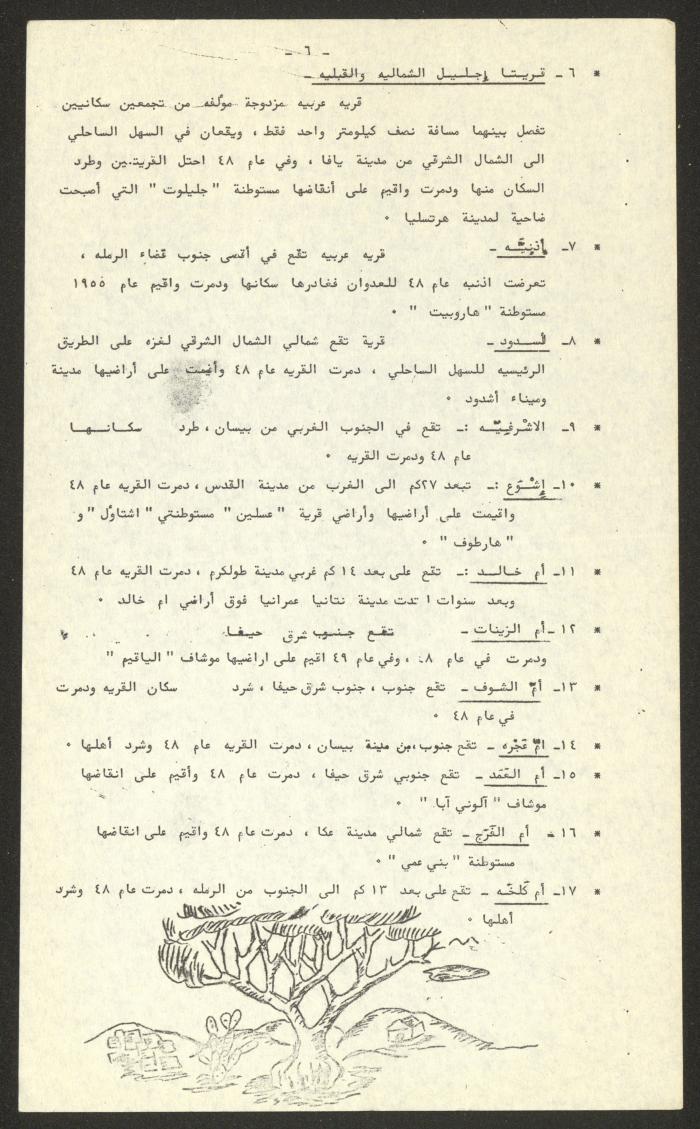 - ٦ -
* ٦ـ قريتا إجليل الشماليه والقبليه ـ
قريه عربيه مزدوجة مؤلفه من تجمعين سكانيين
تفصل بينهما مسافة نصف كيلومتر واحد فقط ، ويقعان في السهل الساحلي
الى الشمال الشرقي من مدينة يافا ، وفي عام ٤٨ احتل القريتين وطرد
السكان منها ودمرت واقيم على أنقاضها مستوطنة " جليلوت " التي أصبحت
ضاحية لمدينة هرتسليا ٠
* ٧ـ إذنبّه ـ قريه عربيه تقع في أقصى جنوب قضاء الرمله ،
تعرضت اذنبه عام ٤٨ للعدوان فغادرها سكانها ودمرت واقيم عام ١٩٥٥
مستوطنة " هاروبيت " ٠
* ٨ـ أسدود ـ قرية تقع شمالي الشمال الشرقي لغزه على الطريق
الرئيسيه للسهل الساحلي ، دمرت القريه عام ٤٨ وأقيمت على أراضيها مدينة
وميناء أشدود ٠
* ٩ـ الاشرفيّه :ـ تقع في الجنوب الغربي من بيسان ، طرد سكانها
عام ٤٨ ودمرت القريه ٠
* ١٠ـ إشوَع :ـ تبعد ٢٧كم الى الغرب من مدينة القدس ، دمرت القريه عام ٤٨
واقيمت على أراضيها وأراضي قرية " عسلين " مستوطنتي " اشتاؤل " و
" هارطوف " ٠
* ١١ـ أم خالد :ـ تقع على بعد ١٤ كم غربي مدينة طولكرم ، دمرت القريه عام ٤٨
وبعد سنوات تدت مدينة نتانيا عمرانيا فوق أراضي ام خالد ٠
* ١٢ـ أم الزينات ـ تقع جنوب شرق حيفا
ودمرت في عام ٤٨ ، وفي عام ٤٩ اقيم على اراضيها موشاف " الياقيم "
* ١٣ـ أمّ الشوف ـ تقع جنوب ، جنوب شرق حيفا ، شرد سكان القريه ودمرت
في عام ٤٨ ٠
* ١٤ـ امّ عَجْره ـ تقع جنوب ، من مدينة بيسان ، دمرت القريه عام ٤٨ وشرد أهلها ٠
* ١٥ـ أم العَمَد ـ تقع جنوبي شرق حيفا ، دمرت عام ٤٨ وأقيم على انقاضها
موشاف " آلوني آبا " ٠
* ١٦ـ أم الفَرَج ـ تقع شمالي مدينة عكا ، دمرت عام ٤٨ واقيم على انقاضها
مستوطنة " بني عمي " ٠
* ١٧ـ أم كَلخَه ـ تقع على بعد ١٣ كم الى الجنوب من الرمله ، دمرت عام ٤٨ وشرد
أهلها ٠